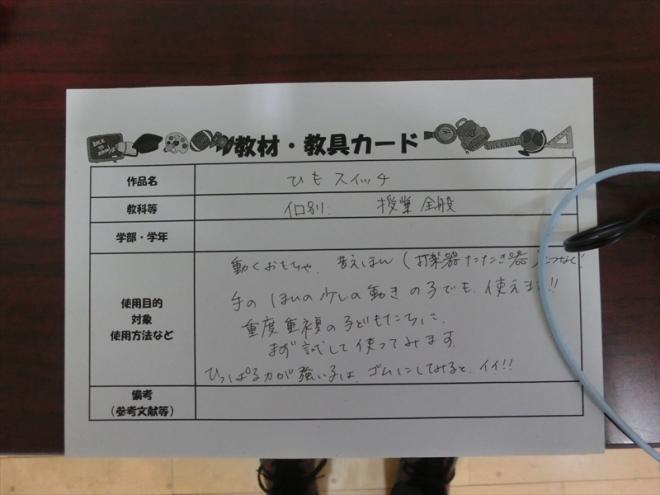 教材・教具カード
作品名
ひもスイッチ
教科等
個別. 授業全般
学部・学年
使用目的
対象
使用方法など
動くおもちゃ、音えほん(打楽器たたき器)につなぐ!
手のほんの少しの動きの子でも、使えます!!
重度重複の子どもたちに、
まず試して使ってみます。
ひっぱる力が強い子は、ゴムにしてみると、イイ!!
備考
(参考文献等)